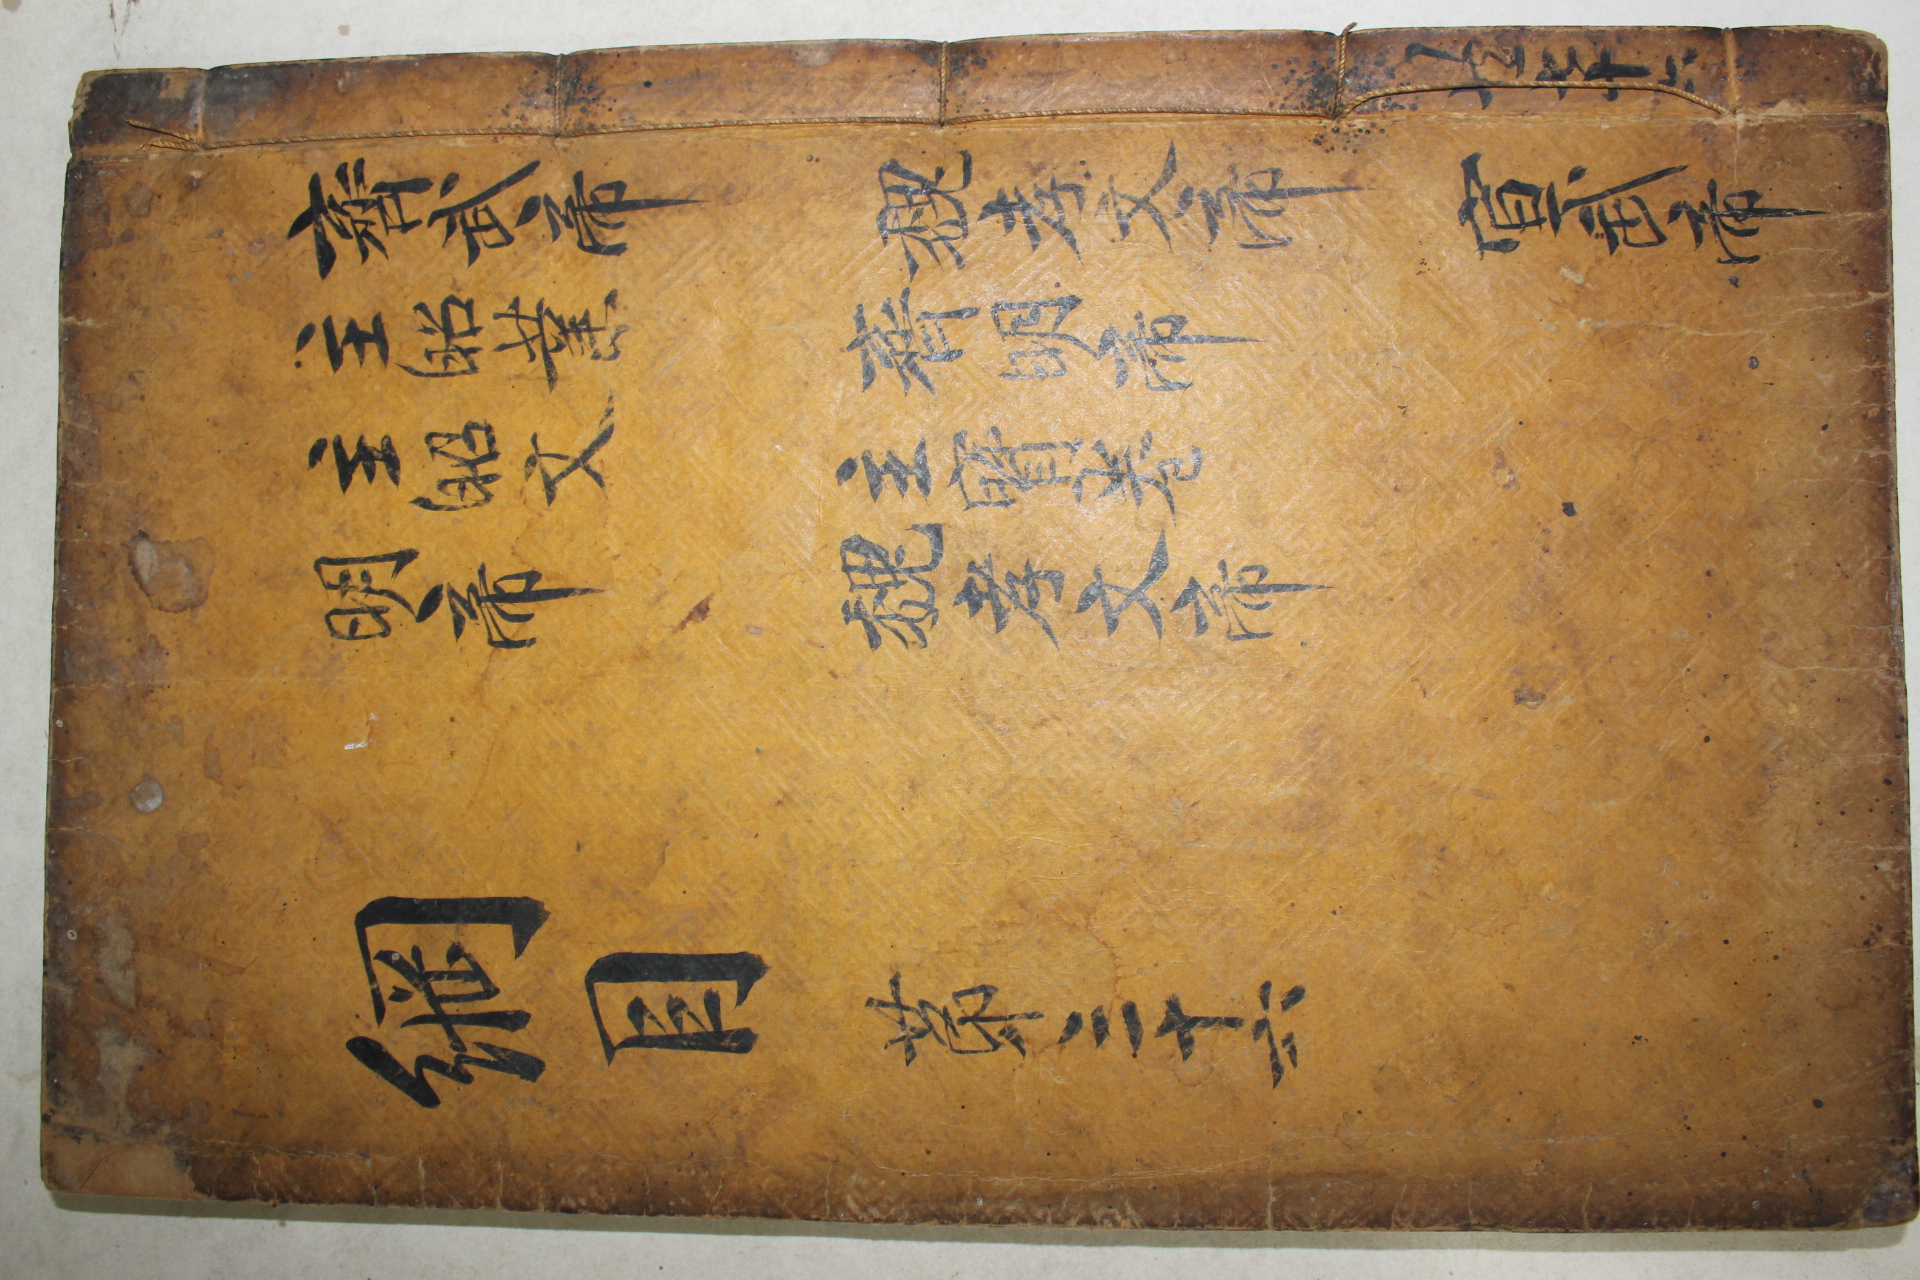 七十六
齊武帝 魏孝文帝 宣武帝
主昭業 齊明帝
主昭文 主寶卷
明帝 魏孝文帝
綱目 第三十六